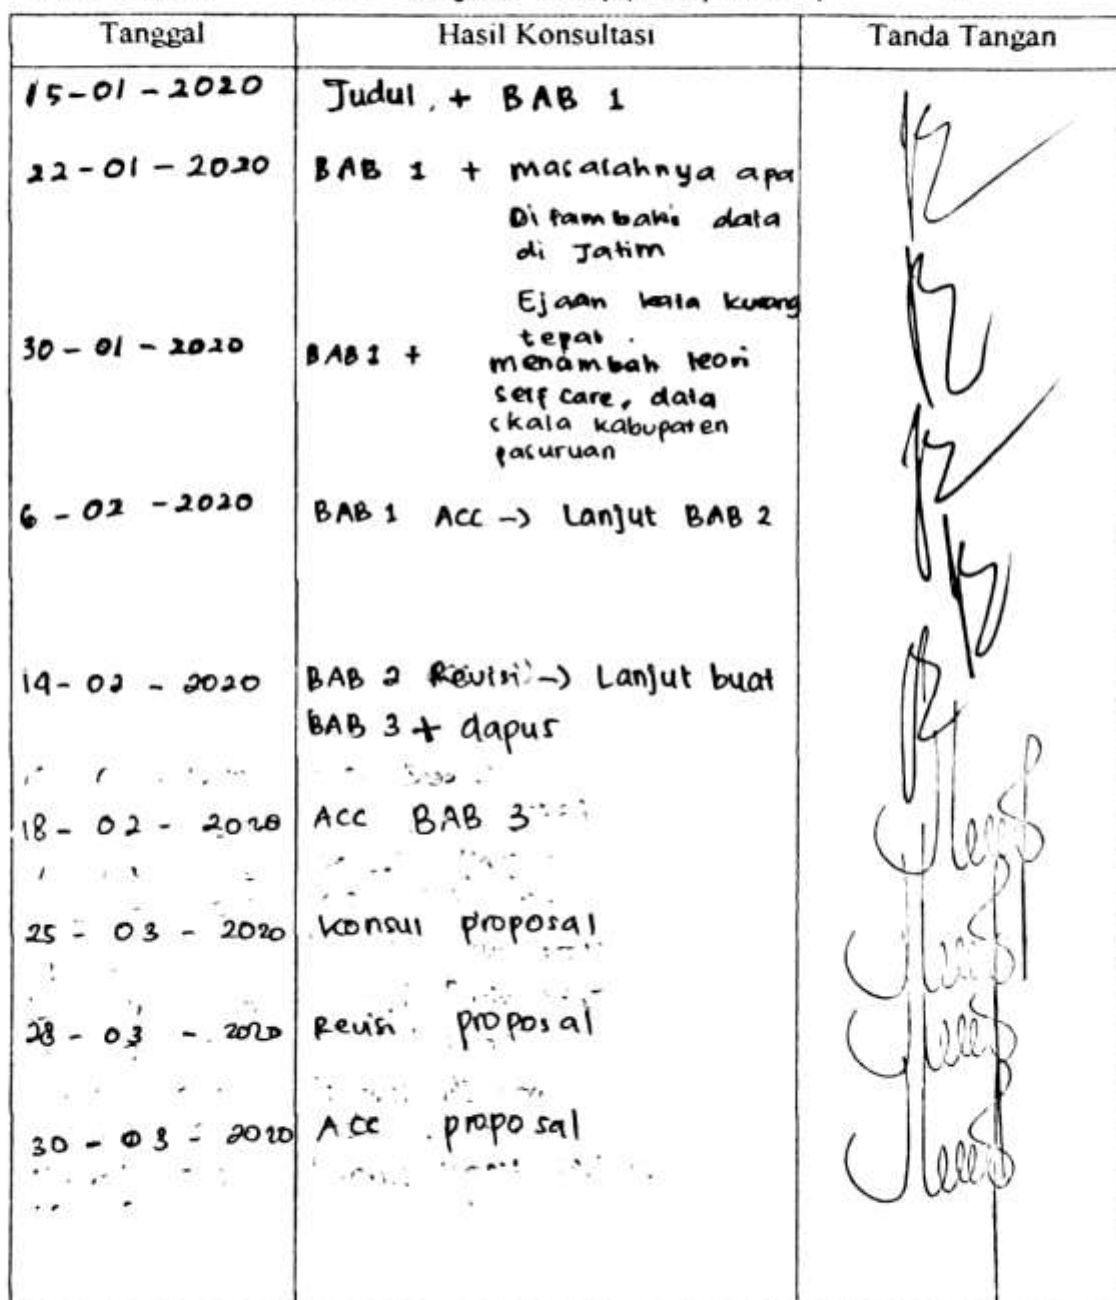 Tanggal Hasil Konsultasi Tanda Tangan
15-01-2020 Judul, + BAB 1
22-01-2020 BAB 1 + masalahnya apa
Ditambahi data
di Jatim
Ejaan kata kurang
tepat.
30-01-2020 BAB 1 + menambah teori
self care, data
skala kabupaten
pasuruan
6-02-2020 BAB 1 ACC -> Lanjut BAB 2
14-02-2020 BAB 2 Revisi -> Lanjut buat
BAB 3 + dapus
18-02-2020 ACC BAB 3
25-03-2020 Konsul proposal
28-03-2020 Revisi proposal
30-03-2020 ACC proposal